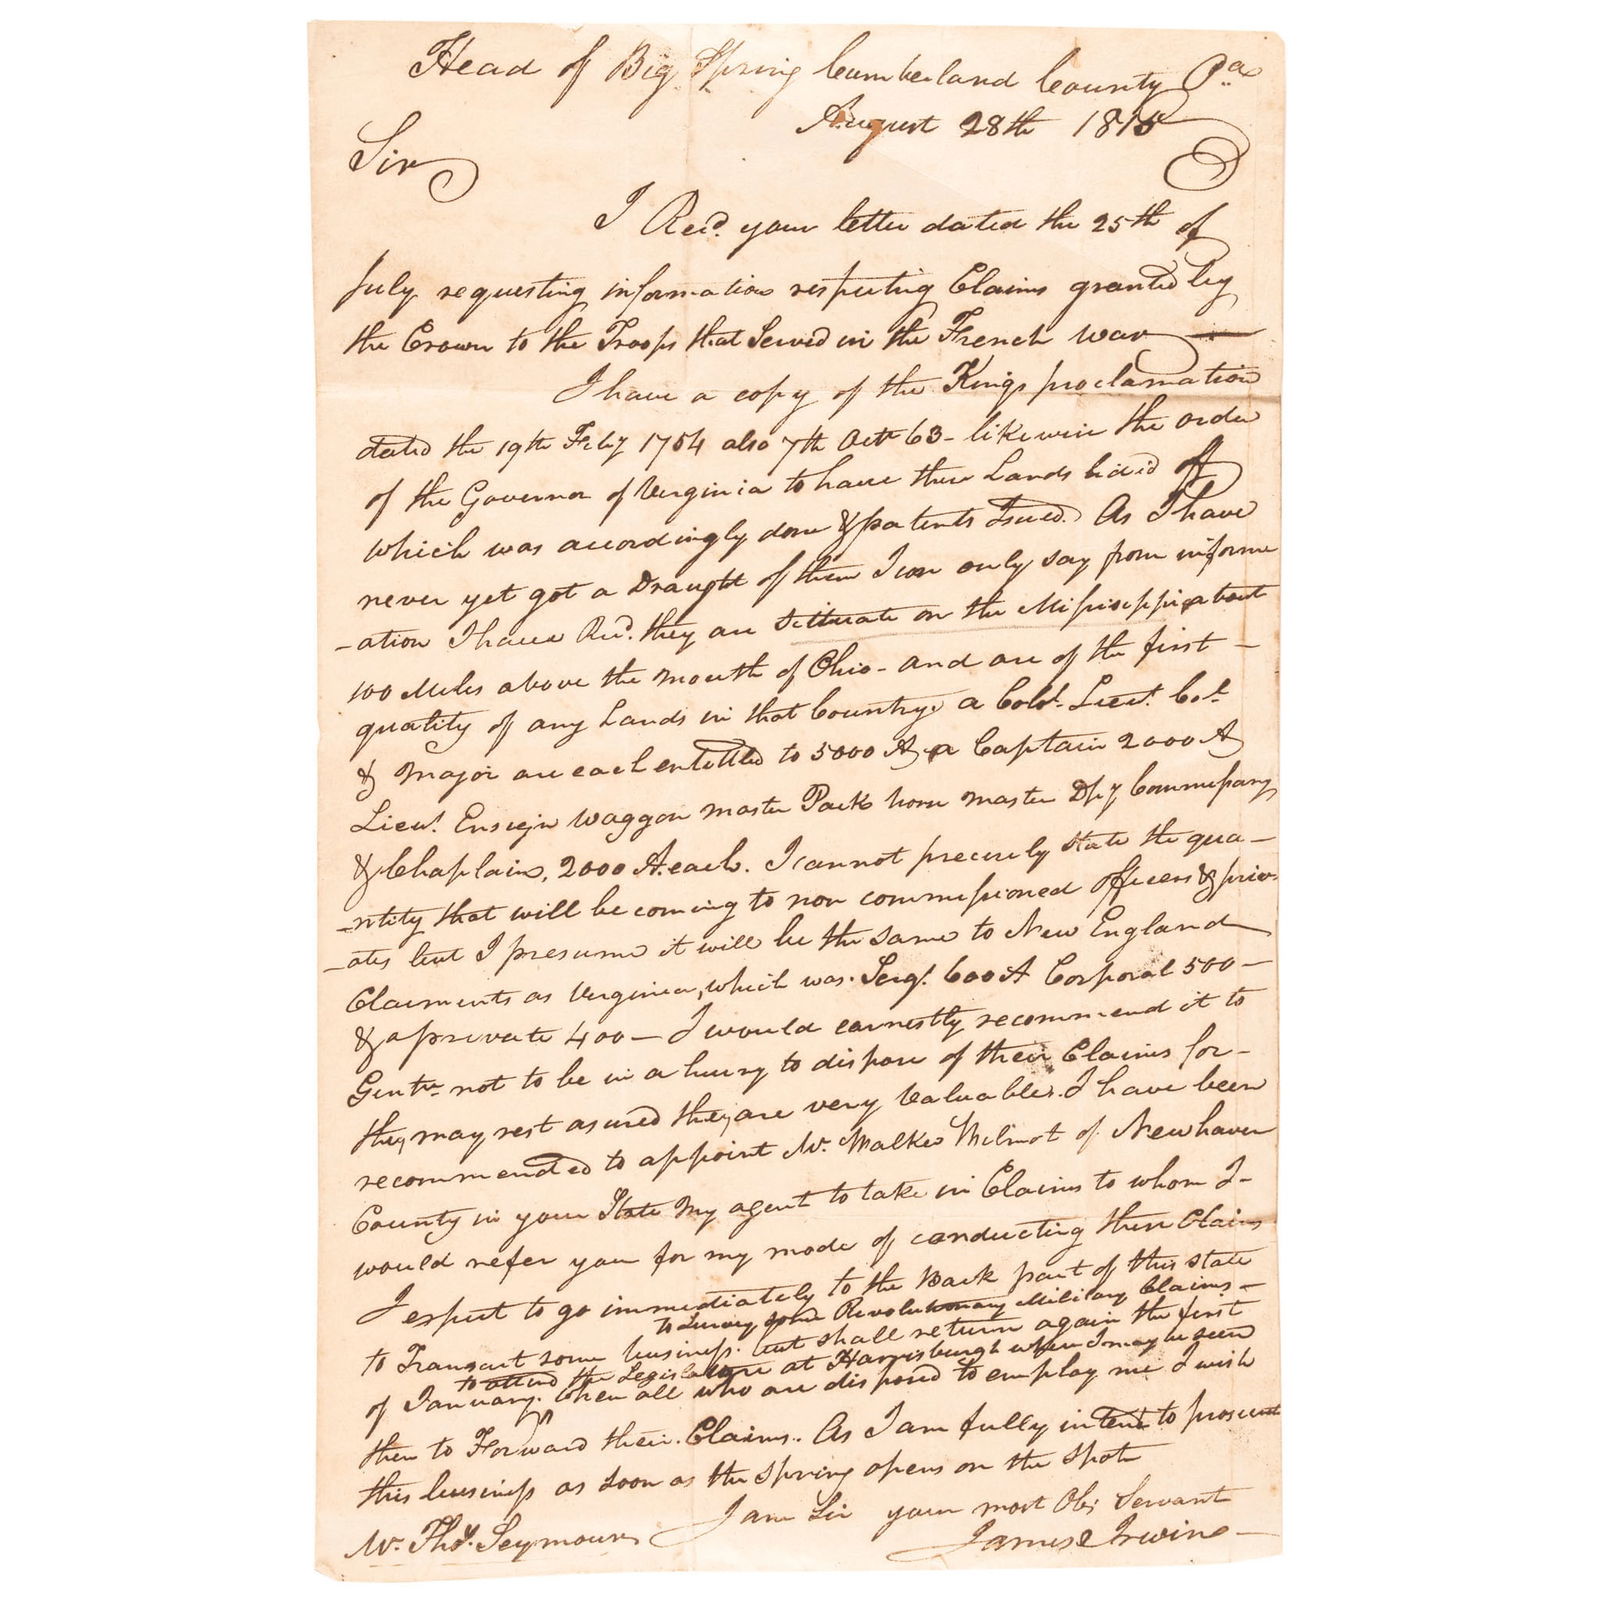 Head of Big Spring Cumberland County Pa
August 28th 1815
Sir
I Recd. your letter dated the 25th of
July requesting information respecting Claims granted by
the Crown to the Troops that Served in the French war —
I have a copy of the Kings proclamation
dated the 19th Feby 1754 also 7th Octr 63 - likewise the order
of the Governor of Virginia to have these Lands laid off
which was accordingly done & patents Isued. As I have
never yet got a Draught of them I can only say from inform
-ation I have Recd. they are Situate on the Missisippi about
100 Miles above the mouth of Ohio - and are of the first -
quality of any Lands in that Country. a Colo. Lieut. Col.
& Major are each entitled to 5000 A, a Captain 2000 A
Lieut. Ensign Waggon master Pack horse master Dpy Commissary
& Chaplain, 2000 A. each. I cannot precisely state the qua-
-ntity that will be coming to non commissioned officers & priv-
-ates but I presume it will be the same to New England
Claiments as Virginia, which was. Sergt. 600 A Corporal 500 -
& a private 400 - I would earnestly recommend it to
Gentn. not to be in a hurry to dispose of their Claims for -
they may rest asured they are very Valuable. I have been
recommended to appoint Mr. Walker Wilmot of Newhaven
County in your State My agent to take in Claims to whom I -
would refer you for my mode of conducting these Claims
I expect to go immediately to the Back part of this state
to Survey some Revolutionary Military Claims -
to Transact some business. but shall return again the first
to attend the Legislature at Harrisburgh when I may be seen
of January. When all who are disposed to employ me I wish
then to Forward their Claims. As I am fully intent to prosecute
this business as soon as the Spring opens on the spot
I am Sir your most Obt Servant
Mr. Thos. Seymour
James Irwine